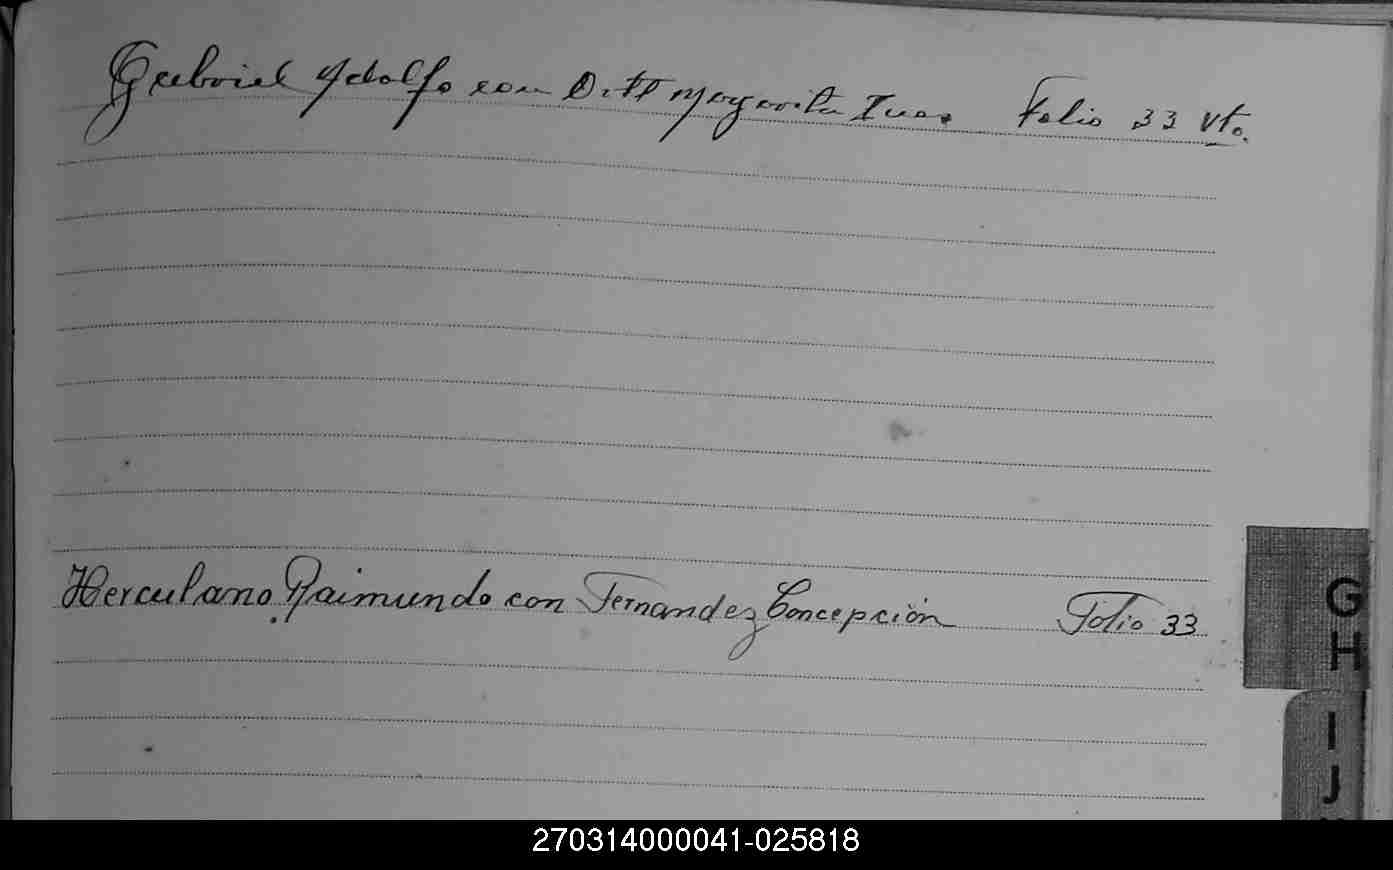 Gabriel Adolfo con Ott Margarita Ines Folio 33 vto.
Herculano Raimundo con Fernandez Concepción Folio 33
G
H
I
J
270314000041-025818